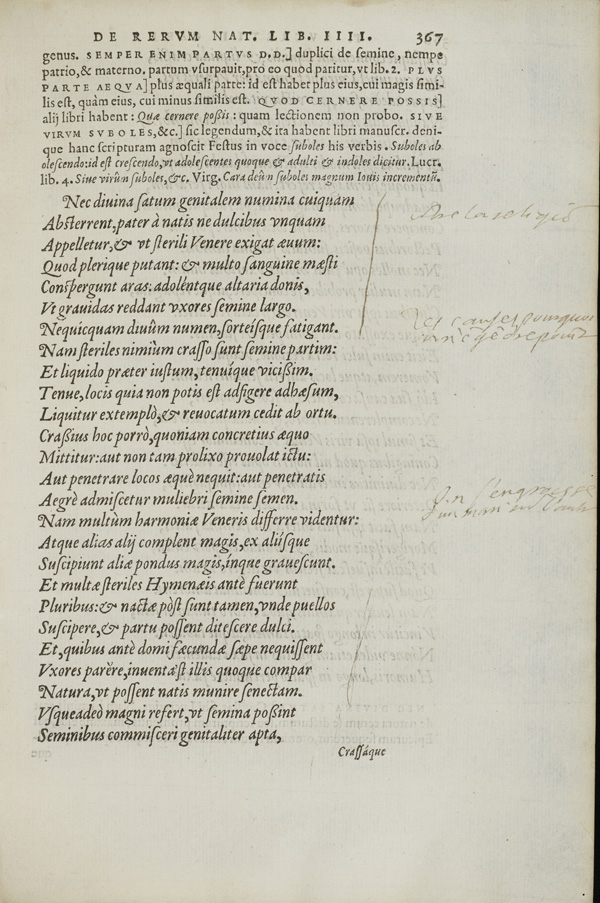 DE RERVM NAT. LIB. IIII. 367
genus. SEMPER ENIM PARTVS D.D.] duplici de semine, nempe
patrio,& materno. partum vsurpauit,pro eo quod paritur, vt lib.2. PLVS
PARTE AEQVA] plus æquali parte: id est habet plus eius,cui magis simi-
lis est, quàm eius, cui minus similis est. QVOD CERNERE POSSIS]
alij libri habent: Quæ cernere poßis: quam lectionem non probo. SIVE
VIRVM SVBOLES,&c.] sic legendum, & ita habent libri manuscr. deni-
que hanc scripturam agnoscit Festus in voce suboles his verbis. Suboles ab
olescendo:id est crescendo,vt adolescentes quoque & adulti & indoles dicitur. Lucr.
lib. 4. Siue virûm suboles,&c. Virg. Cara deûm suboles magnum Iouis incrementū.
Nec diuina satum genitalem numina cuiquam
Absterrent,pater à natis ne dulcibus vnquam
Appelletur,& vt sterili Venere exigat æuum:
Quod plerique putant: & multo sanguine mæsti
Conspergunt aras: adoléntque altaria donis,
Vt grauidas reddant vxores semine largo.
Nequicquam diuûm numen,sorteísque fatigant.
Nam steriles nimiùm crasso sunt semine partim:
Et liquido præter iustum, tenuíque vicißim.
Tenue, locis quia non potis est adfigere adhæsum,
Liquitur extemplò,& reuocatum cedit ab ortu.
Craßius hoc porrò,quoniam concretius æquo
Mittitur:aut non tam prolixo prouolat ictu:
Aut penetrare locos æquè nequit:aut penetratis
Aegrè admiscetur muliebri semine semen.
Nam multùm harmoniæ Veneris differre videntur:
Atque alias alij complent magis,ex aliísque
Suscipiunt aliæ pondus magis,ínque grauescunt.
Et multæ steriles Hymenæis antè fuerunt
Pluribus:& nactæ pòst sunt tamen,vnde puellos
Suscipere,& partu possent ditescere dulci.
Et,quibus antè domi fæcundæ sæpe nequissent
Vxores parère,inuenta'st illis quoque compar
Natura,vt possent natis munire senectam.
Vsqueadeò magni refert,vt semina poßint
Seminibus commisceri genitaliter apta,
Crassáque